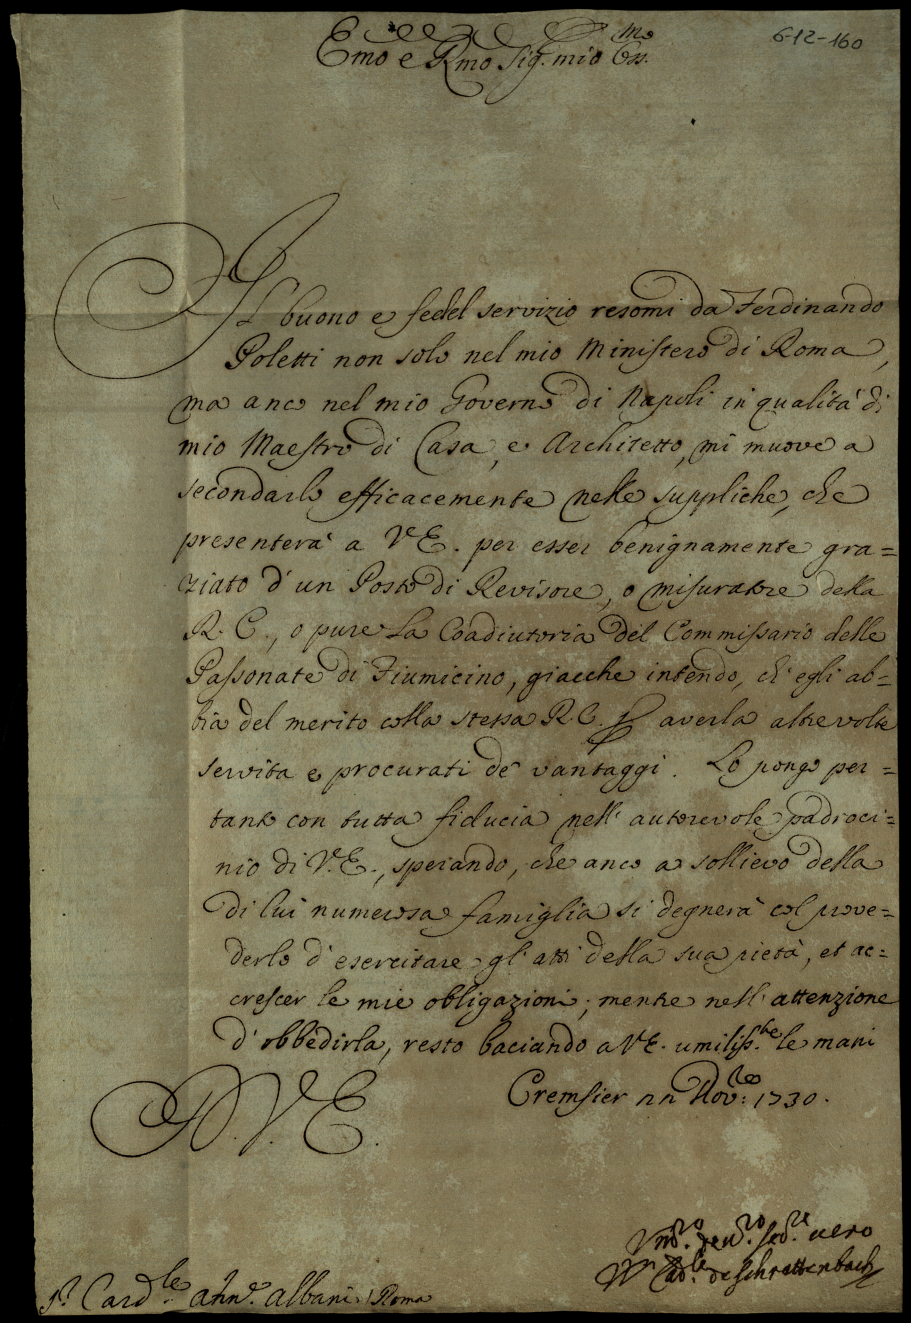 6-12-160
Emo e Rmo Sig. mio Oss.mo
Il buono e fedel servizio resomi da Ferdinando
Poletti non solo nel mio Ministero di Roma,
ma anco nel mio Governo di Napoli in qualità di
mio Maestro di Casa, e Architetto, mi muove a
secondarlo efficacemente nelle suppliche, che
presenterà a V.E. per esser benignamente gra=
ziato d'un Posto di Revisore, o misuratore della
R. C., o pure la Coadiutoria del Commissario delle
Passonate di Fiumicino, giacche intendo, ch'egli ab=
bia del merito colla stessa R.C. p averla altre volte
servita e procurati de' vantaggi. Lo pongo per=
tanto con tutta fiducia nell'autorevole padroci=
nio di V.E., sperando, che anco a sollievo della
di lui numerosa famiglia si degnerà col prove=
derlo d'esercitare gl'atti della sua pietà, et ac=
crescer le mie obligazioni; mentre nell'attenzione
d'obbedirla, resto baciando a V.E. umiliss.te le mani
Cremsier 22 Nov.re: 1730.
D. V. E.
dev.o se.re vero
W Card.le de Schrattenbach
S.r Card.le Ann.e Albani / Roma